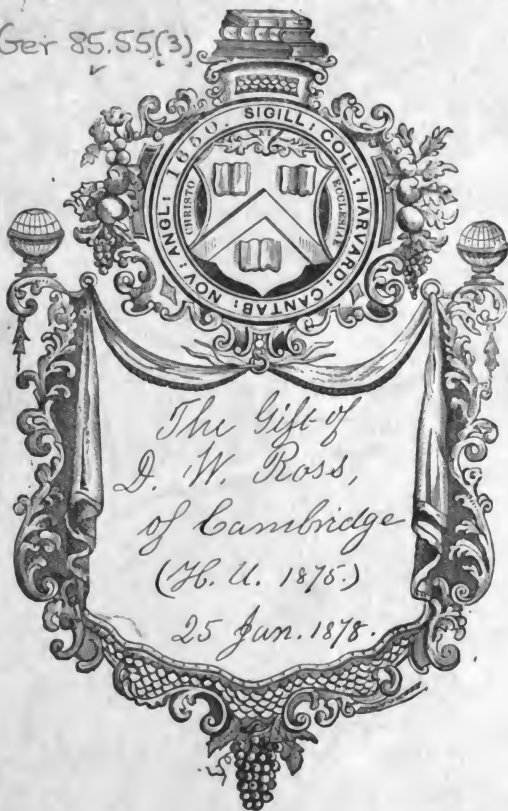 Ger 85.55(3)
SIGILL: COLL: HARVARD: CANTAB: NOV: ANGL: 1650.
ET
CHRISTO
ECCLESIAE
The Gift of
D. W. Ross,
of Cambridge
(H. U. 1875.)
25 Jan. 1878.